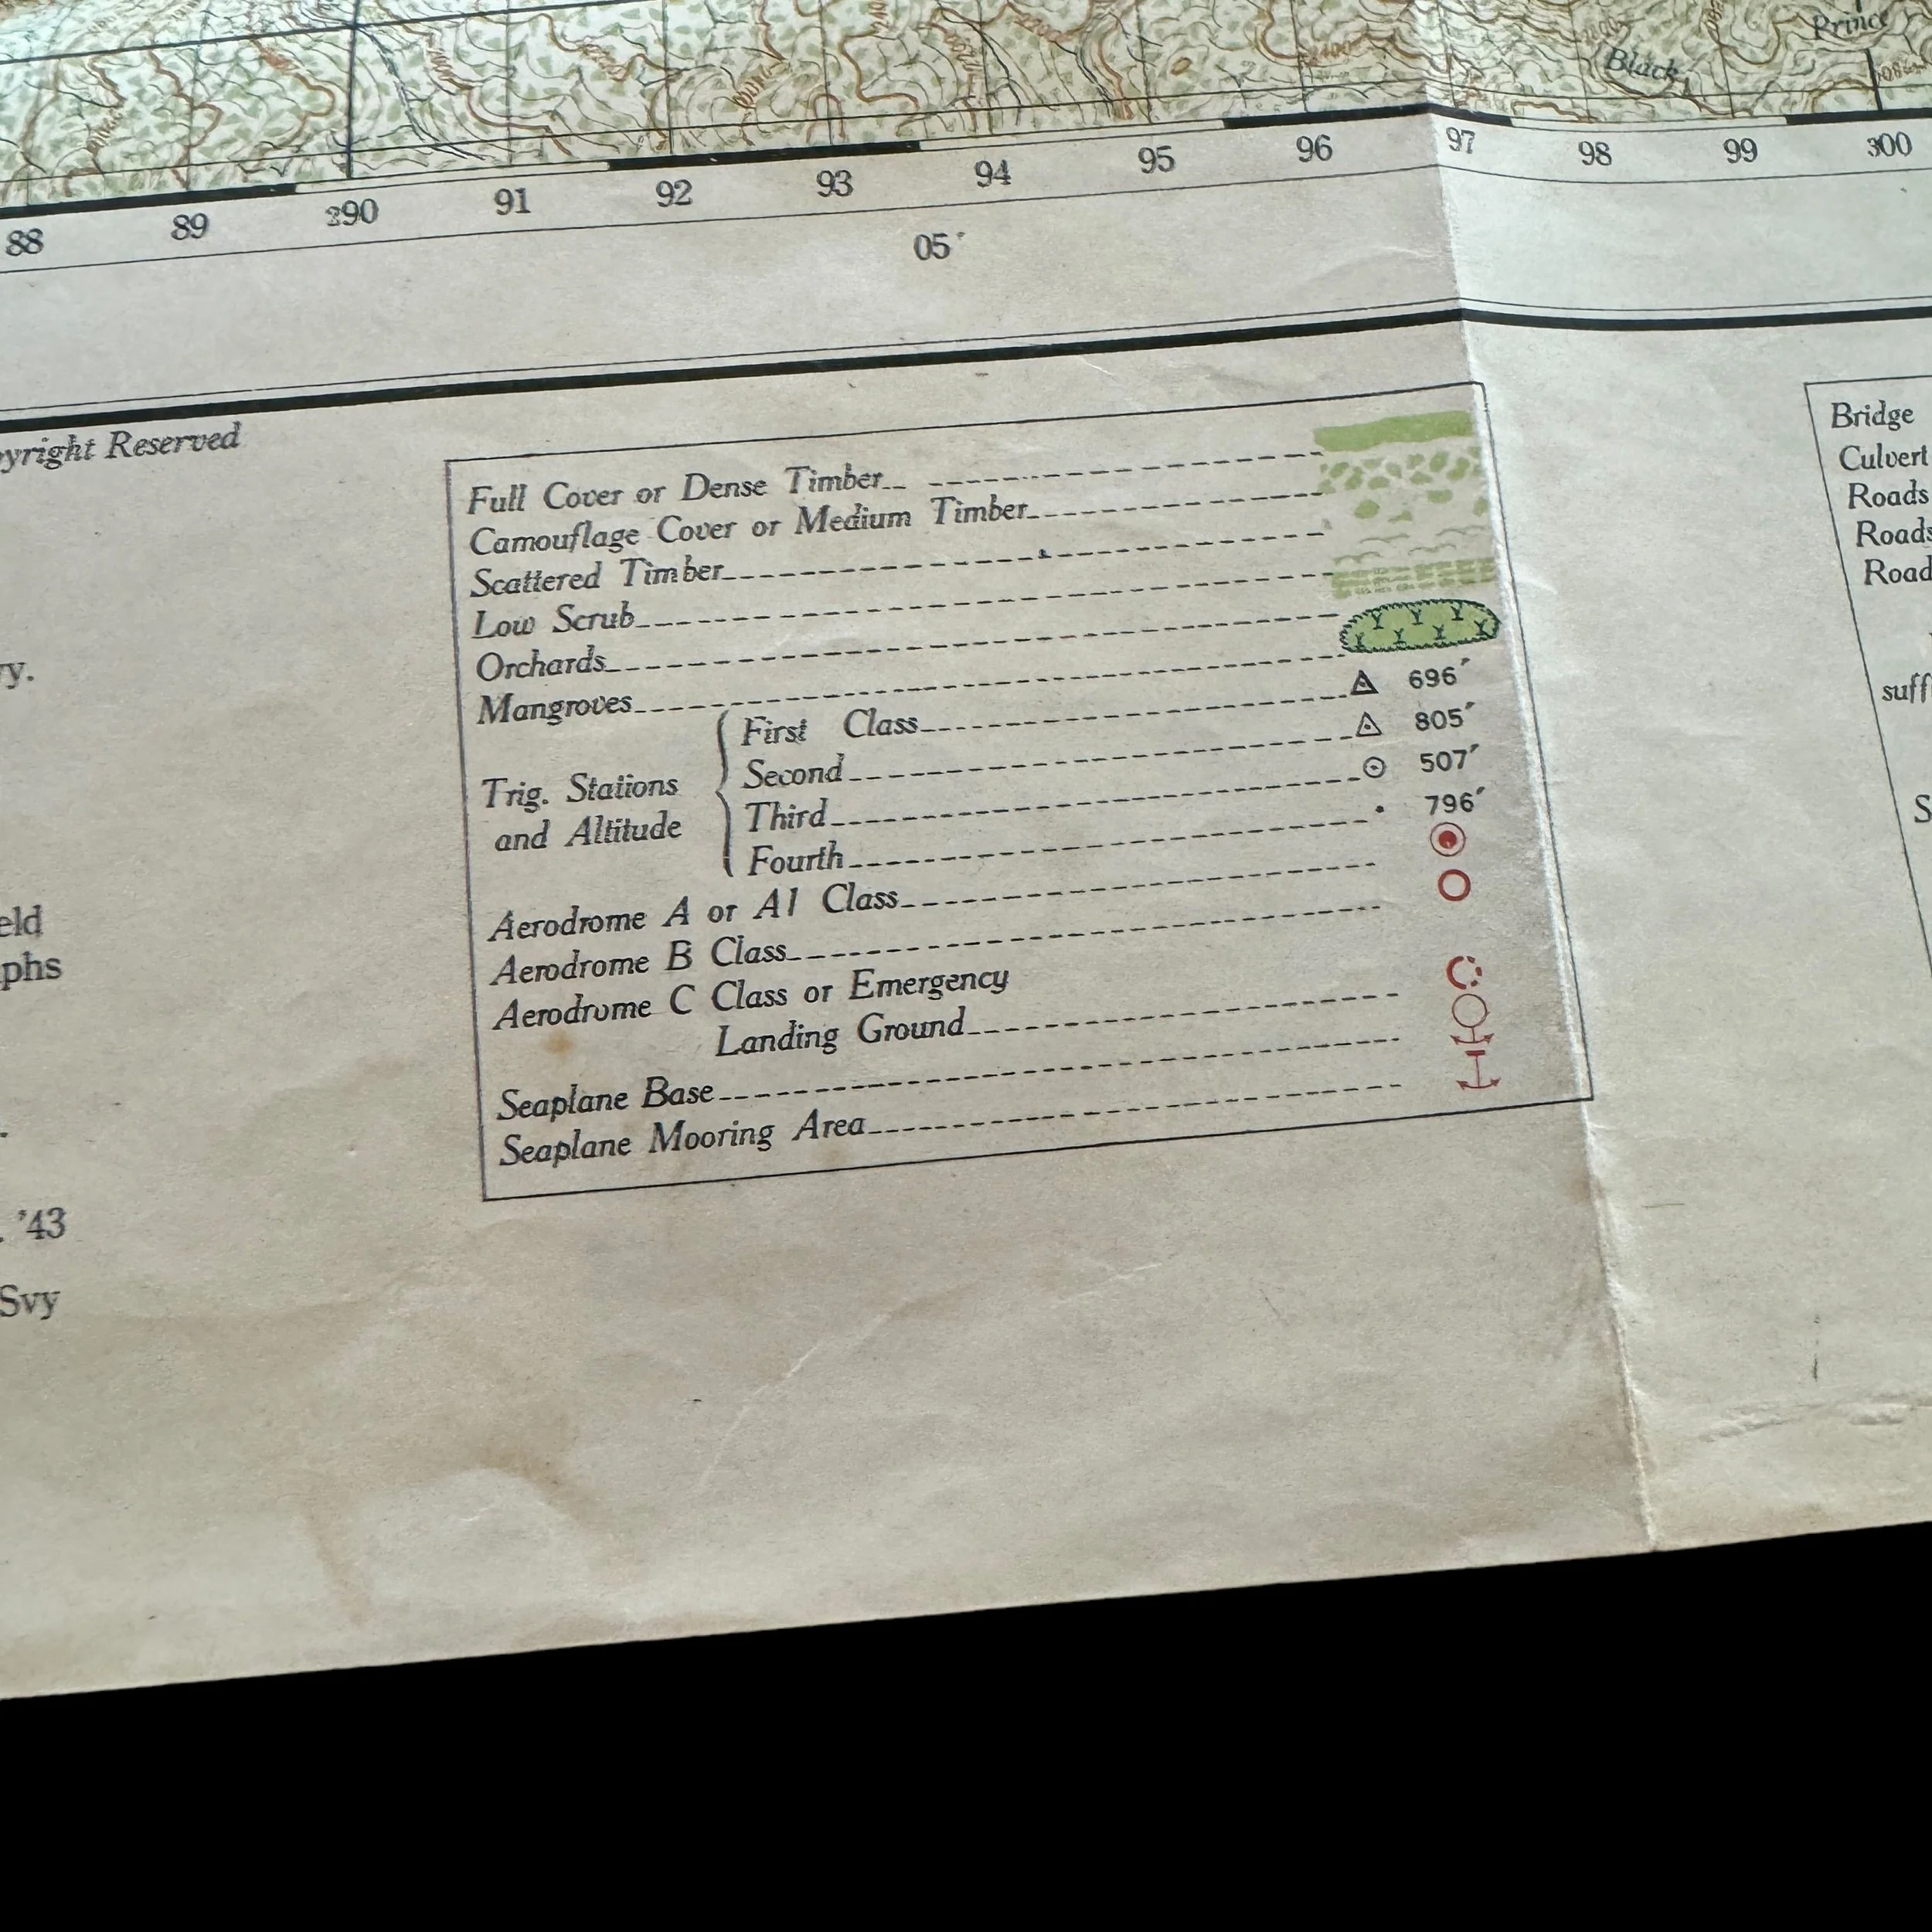 Prince
Black
88 89 290 91 92 93 94 95 96 97 98 99 300
05'
yright Reserved
y.
eld
phs
. '43
Svy
Full Cover or Dense Timber
Camouflage Cover or Medium Timber
Scattered Timber
Low Scrub
Orchards
Mangroves
Trig. Stations
and Altitude
First Class 696'
Second 805'
Third 507'
Fourth 796'
Aerodrome A or A1 Class
Aerodrome B Class
Aerodrome C Class or Emergency
Landing Ground
Seaplane Base
Seaplane Mooring Area
Bridge
Culvert
Roads
Roads
Road
suff
S